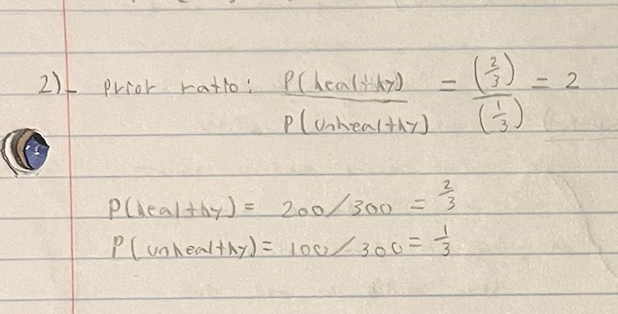 2) Prior ratio: P(healthy) / P(unhealthy) = (2/3) / (1/3) = 2
P(healthy) = 200/300 = 2/3
P(unhealthy) = 100/300 = 1/3